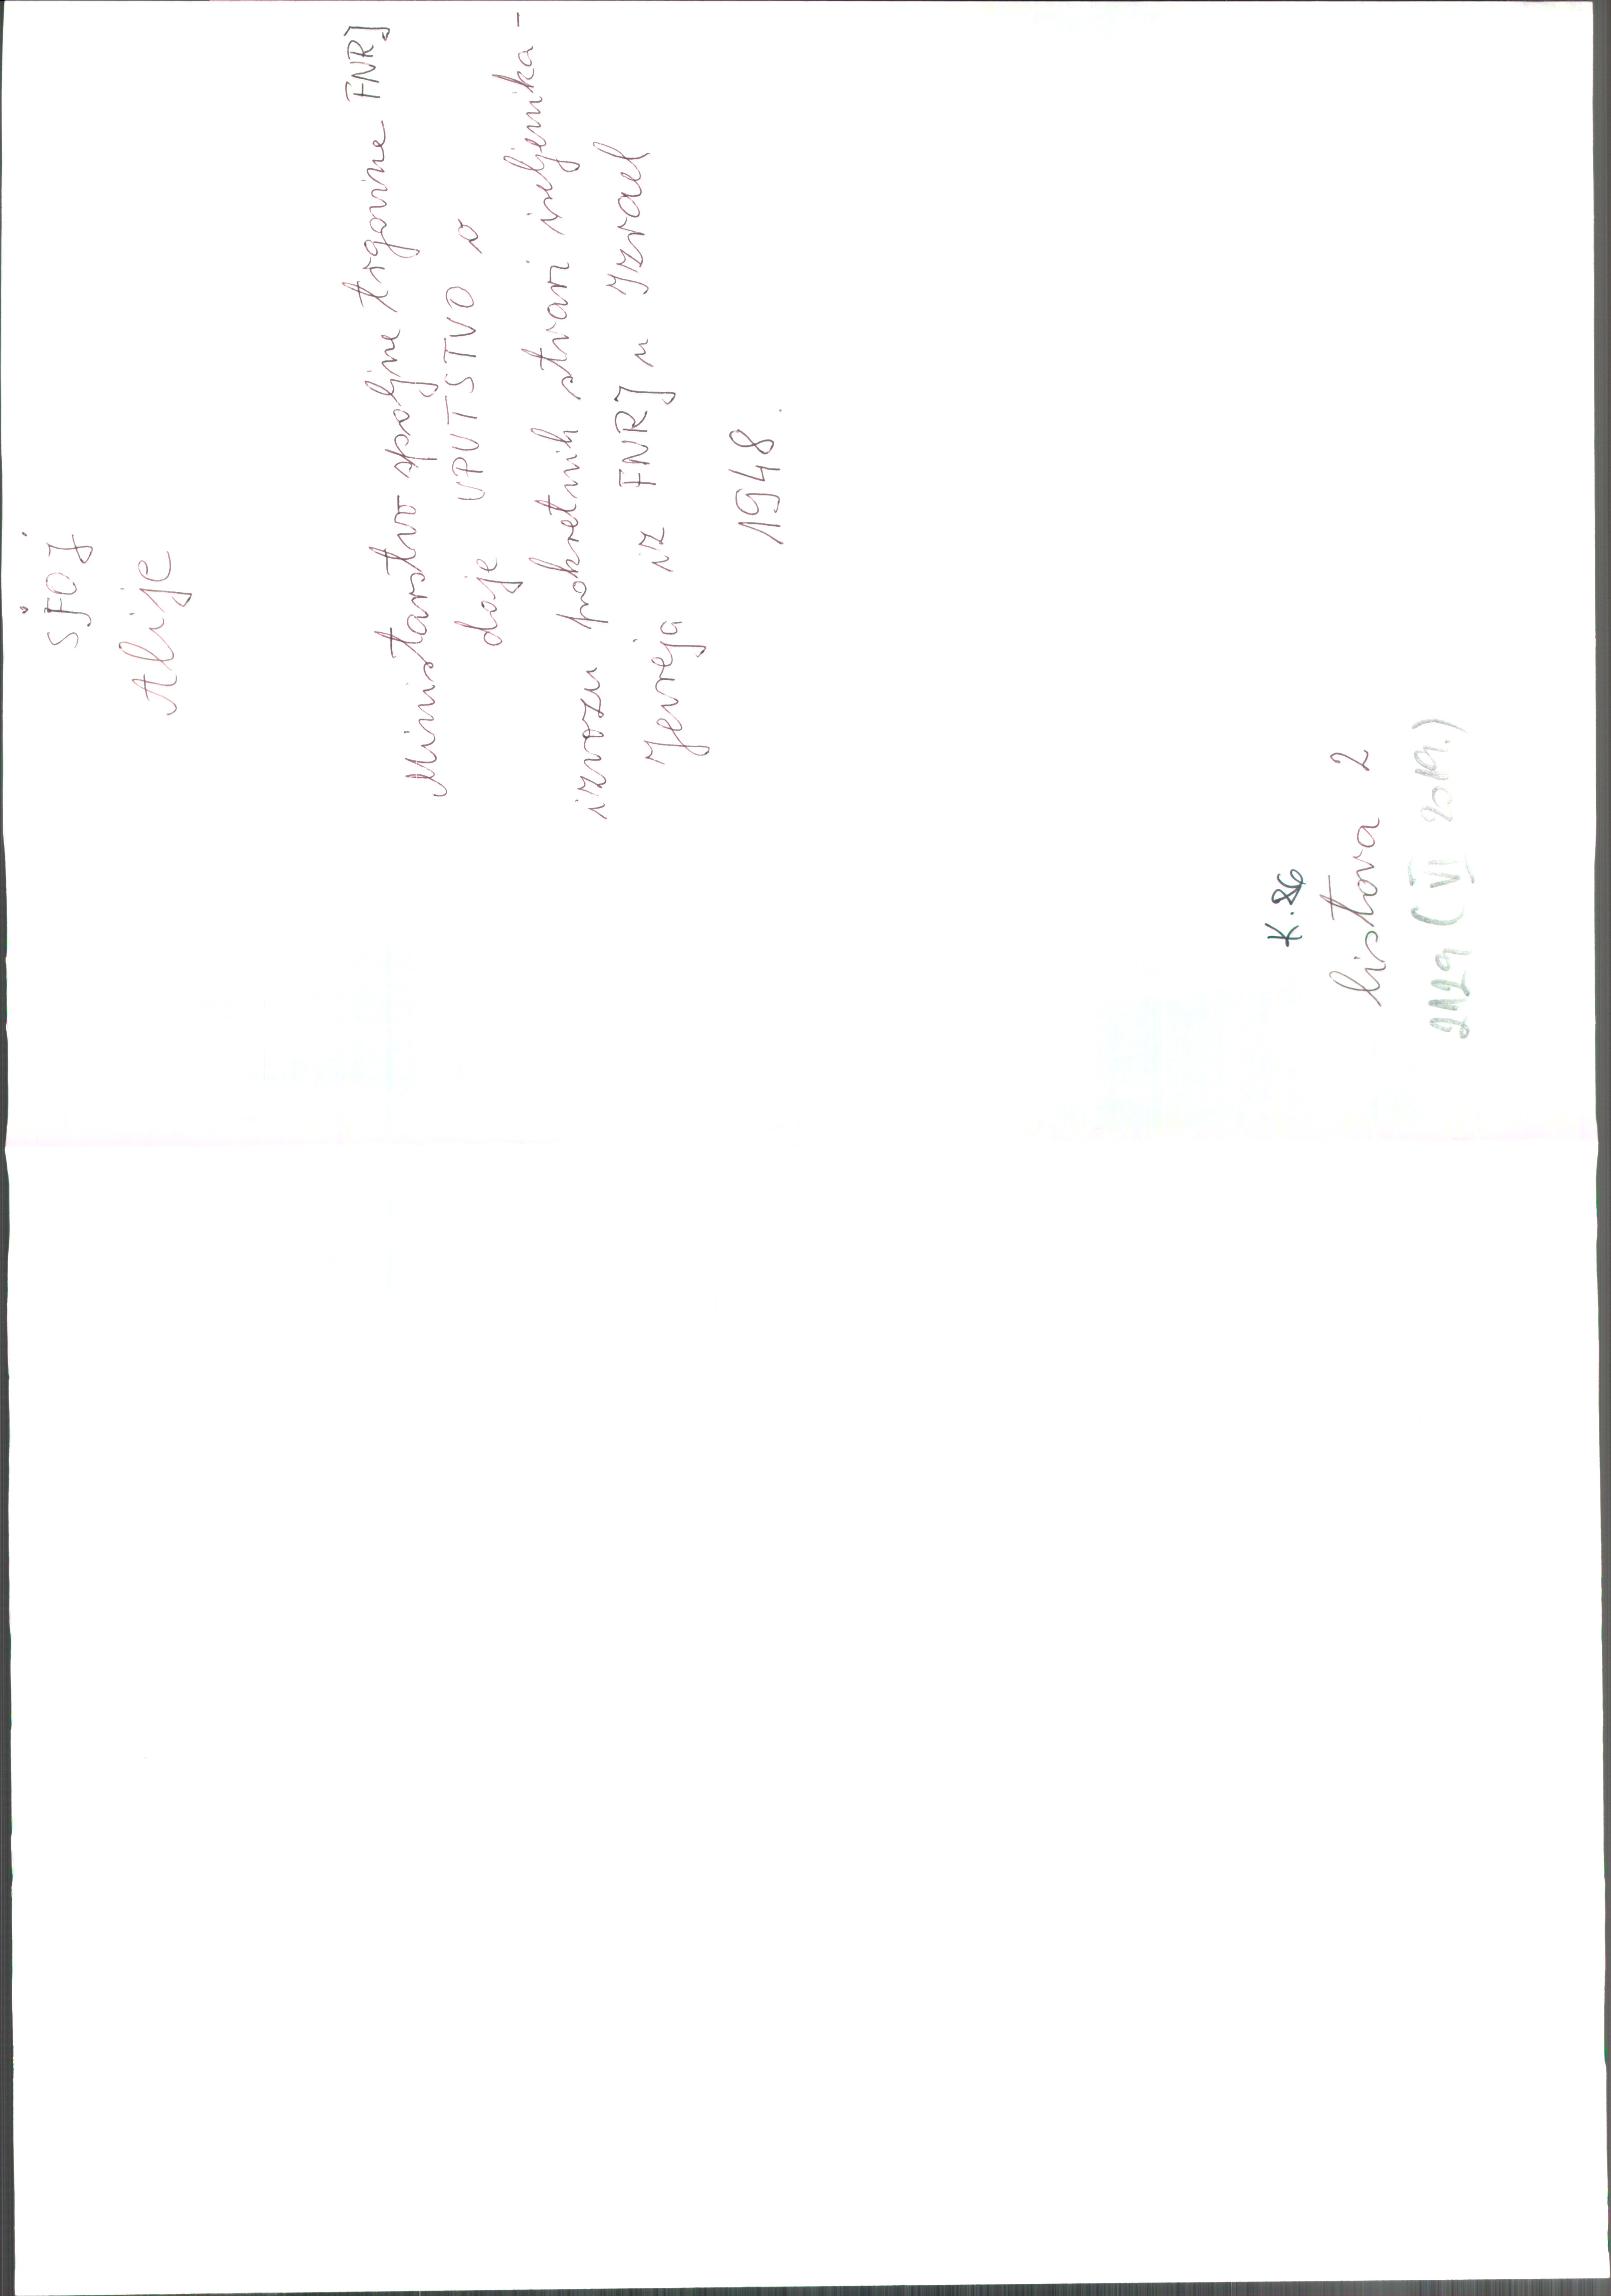 SJOJ
Alije
Ministarstvo spoljne trgovine FNRJ
daje UPUTSTVO o
izvozu pokretnih stvari iseljenika -
Jevreja iz FNRJ u Izrael
1948.
K. 86
listova 2
2129 (VI 2019.)